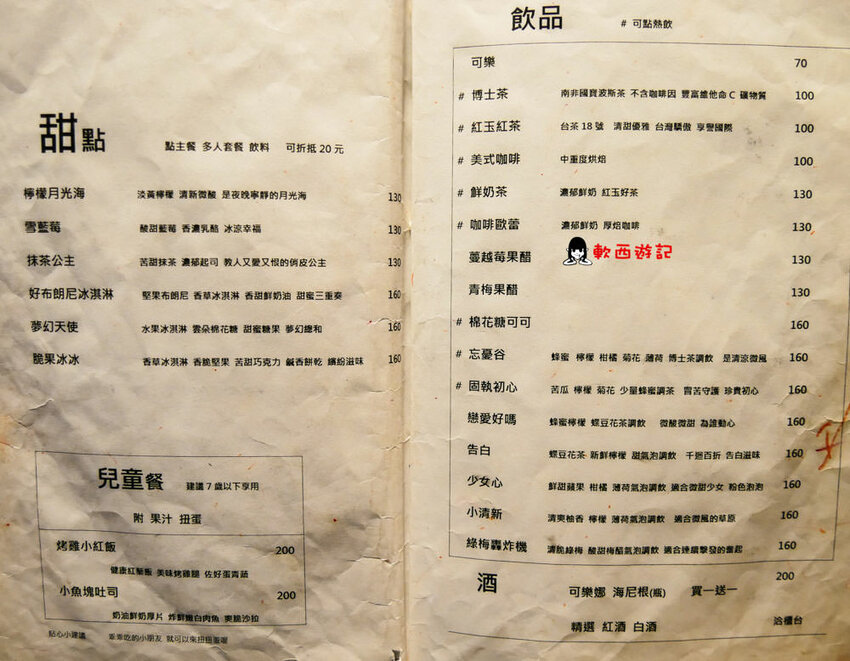 甜點 點主餐 多人套餐 飲料 可折抵20元
檸檬月光海 淡黃檸檬 清新微酸 是夜晚寧靜的月光海 130
雪藍莓 酸甜藍莓 香濃乳酪 冰涼幸福 130
抹茶公主 苦甜抹茶 濃郁起司 教人又愛又恨的俏皮公主 130
好布朗尼冰淇淋 堅果布朗尼 香草冰淇淋 香甜鮮奶油 甜蜜三重奏 160
夢幻天使 水果冰淇淋 雲朵棉花糖 甜蜜糖果 夢幻總和 160
脆果冰冰 香草冰淇淋 香脆堅果 苦甜巧克力 鹹香餅乾 繽紛滋味 160
兒童餐 建議7歲以下享用
附 果汁 扭蛋
烤雞小紅飯 200
健康紅藜飯 美味烤雞腿 佐好蛋青蔬
小魚塊吐司 200
奶油鮮奶厚片 炸鮮嫩白肉魚 爽脆沙拉
貼心小建議 乖乖吃的小朋友 就可以來扭扭蛋喔
飲品 # 可點熱飲
可樂 70
# 博士茶 南非國寶波斯茶 不含咖啡因 豐富維他命C 礦物質 100
# 紅玉紅茶 台茶18號 清甜優雅 台灣驕傲 享譽國際 100
# 美式咖啡 中重度烘焙 100
# 鮮奶茶 濃郁鮮奶 紅玉好茶 130
# 咖啡歐蕾 濃郁鮮奶 厚焙咖啡 130
蔓越莓果醋 130
軟西遊記
青梅果醋 130
# 棉花糖可可 160
# 忘憂谷 蜂蜜 檸檬 柑橘 菊花 薄荷 博士茶調飲 是清涼微風 160
# 固執初心 苦瓜 檸檬 菊花 少量蜂蜜調茶 冒苦守護 珍貴初心 160
戀愛好嗎 蜂蜜檸檬 蝶豆花茶調飲 微酸微甜 為誰動心 160
告白 蝶豆花茶 新鮮檸檬 甜氣泡調飲 千迴百折 告白滋味 160
少女心 鮮甜蘋果 柑橘 薄荷氣泡調飲 適合微甜少女 粉色泡泡 160
小清新 清爽柚香 檸檬 薄荷氣泡調飲 適合微風的草原 160
綠梅轟炸機 清脆綠梅 酸甜梅醋氣泡調飲 適合連續擊發的奮起 160
酒 可樂娜 海尼根(瓶) 買一送一 200
精選 紅酒 白酒 洽櫃台